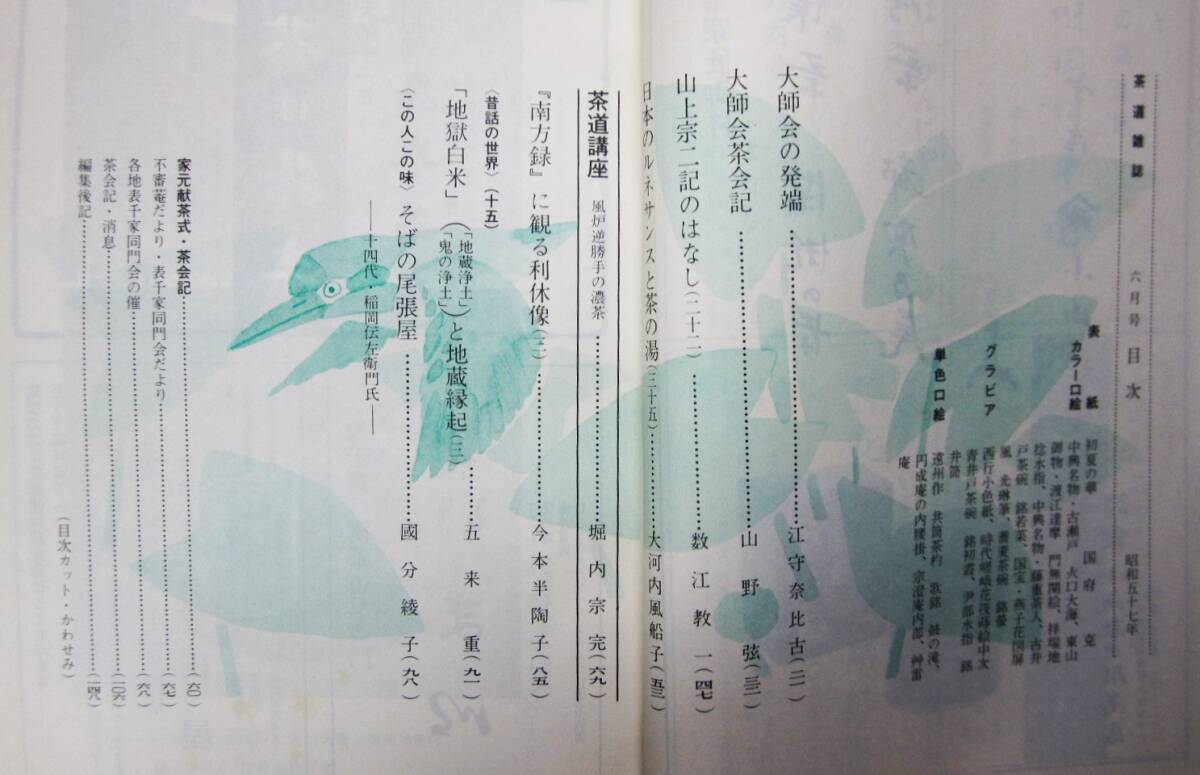 茶道雑誌
六月号 目次
昭和五十七年
表紙 初夏の華 国府克
カラー口絵 中興名物・古瀬戸 大口大海、東山
御物・渡江達摩 門無関絵、祥瑞地
捻水指、中興名物・藤重茶入、古井
戸茶碗 銘若菜、国宝・燕子花図屏
風 光琳筆、蕎麦茶碗 銘
グラビア 西行小色紙、時代嵯峨花筏蒔絵中次
青井戸茶碗 銘初霞、尹部水指 銘
井筒
単色口絵 遠州作 共筒茶杓 歌銘 鼓の滝、
円成庵の内腰掛、宗澄庵内部、艸雷
庵
大師会の発端……江守奈比古(二一)
大師会茶会記……山野弦(三三)
山上宗二記のはなし(二十二)……数江教一(四七)
日本のルネサンスと茶の湯(三十五)……大河内風船子(五三)
茶道講座 風炉逆勝手の濃茶……堀内宗完(六九)
『南方録』に観る利休像(三)……今本半陶子(八五)
〈昔話の世界〉(十五)
「地獄白米」(「地蔵浄土」「鬼の浄土」)と地蔵縁起(三)……五来重(九一)
〈この人この味〉そばの尾張屋……國分綾子(九八)
――十四代・稲岡伝左衛門氏――
家元献茶式・茶会記……(六〇)
不審菴だより・表千家同門会だより……(六七)
各地表千家同門会の催……(六八)
茶会記・消息……(一〇六)
編集後記……(一四八)
(目次カット・かわせみ)